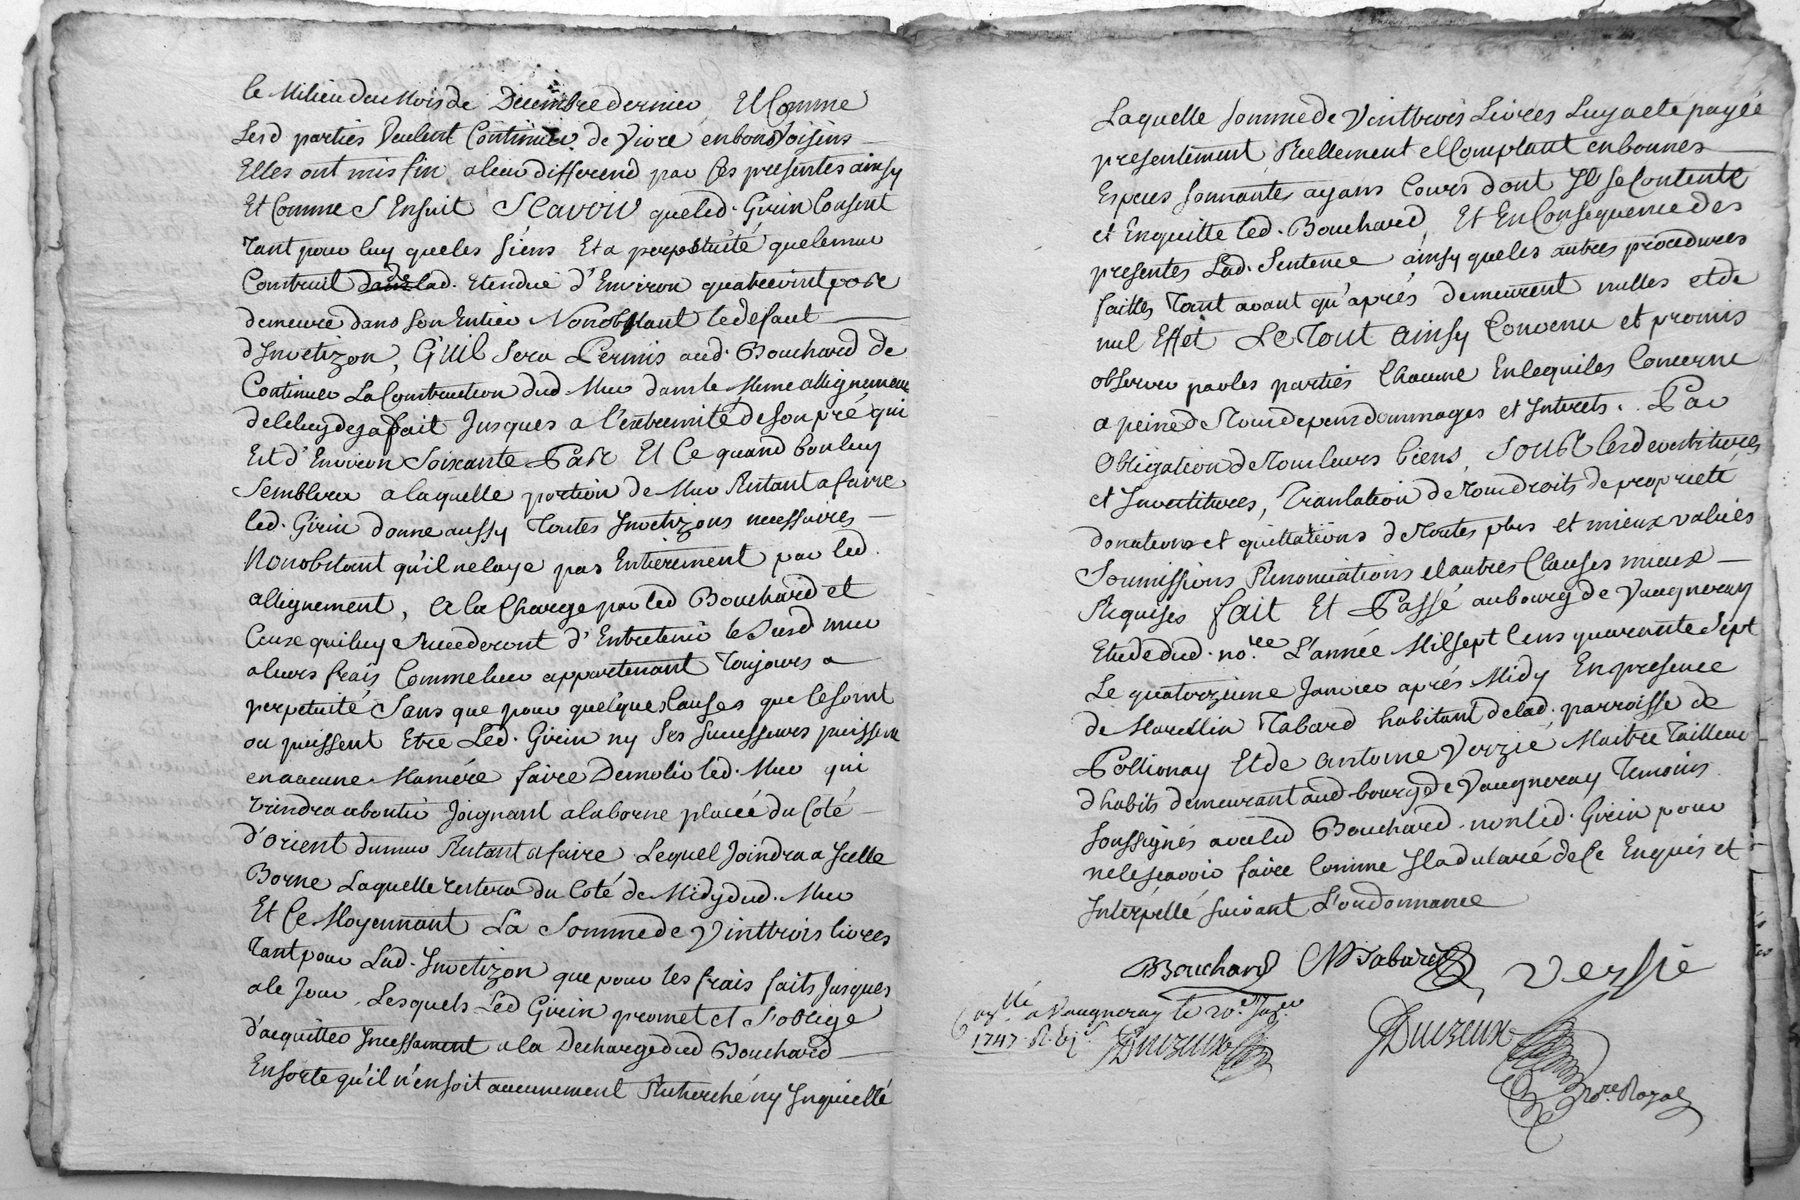 le Milieu du Mois de Decembre dernier, Et Comme
Lesd parties Veulent Continuer de Vivre en bons Voisins
Elles ont mis fin a leur differend par Ces presentes ainsy
Et Comme S'Ensuit Scavoir que led. Girin Consent
tant pour luy que les siens Et a perpetuité que le mur
Construit de lad. Etendue d'Environ quatre vint pas
demeure dans son Entier Nonobstant le defaut
d'Invetizon, Qu'il Sera Permis aud. Bouchard de
Continuer La Construction dud Mur dans le Meme allignement
de celuy deja fait Jusques a l'extremité de son pré qui
Est d'Environ Soixante Pas Et Ce quand bon luy
Semblera a laquelle portion de Mur Restant a faire
led. Girin donne aussy Toutes Invetizons necessaires
Nonobstant qu'il ne laye pas Entierement par led.
allignement, A la Charge par led Bouchard et
Ceux qui luy Succederont d'Entretenir le Susd mur
a leurs frais Comme leur appartenant Toujours a
perpetuité Sans que pour quelques Causes que Ce soint
ou puissent Etre Led. Girin ny Ses Successeurs puissent
en aucune Maniére faire Demolir led. Mur qui
Viendra aboutir Joignant a la borne placée du Coté
d'orient du mur Restant a faire Lequel Joindra a Icelle
Borne Laquelle restera du Coté de Midy dud. Mur
Et Ce Moyennant La Somme de Vinttrois livres
Tant pour Lad. Invetizon que pour les frais faits Jusques
a Ce Jour, Lesquels Led Girin promet et S'oblige
d'acquitter Incessament a la Decharge dud Bouchard
En sorte qu'il n'en soit aucunement Recherché ny Inquietté
Laquelle somme de Vinttrois Livres Luy a eté payée
presentement Réellement et Comptant en bonnes
Especes sonnantes ayans Cours dont Il se Contente
et En quitte led. Bouchard, Et En Consequence des
presentes Lad. Sentence ainsy que les autres procedures
faittes Tant avant qu'aprés demeurent nulles et de
nul Effet Le Tout ainsy Convenu et promis
observer par les parties Chacune En ce qui les Concerne
a peine de Tous depens dommages et Interets. Par
Obligation de Tous leurs biens, Sous les devestitures
et Investitures, Translation de Tous droits de proprieté
donations et quittations de Toutes plus et mieux values
Soumissions Renonciations et autres Clauses mieux
Requises fait Et Passé au bourg de Vaugneray
Etude dud. no.re L'année Mil sept Cens quarante Sept
Le quatorzieme Janvier aprés Midy En presence
de Marcellin Tabard habitant de lad. parroisse de
Pollionay Et de Antoine Verzié, Maitre Tailleur
d'habits demeurant aud bourg de Vaugneray Temoins
Soussignés avec led Bouchard non led. Girin pour
ne le scavoir faire Comme Il a declaré de Ce Enquis et
Interpellé suivant L'ordonnance
Bouchard M Tabard Versie
a Vaugneray le 20.e Jan.er
1747
Duizeux
Duizeux
No.re Royal